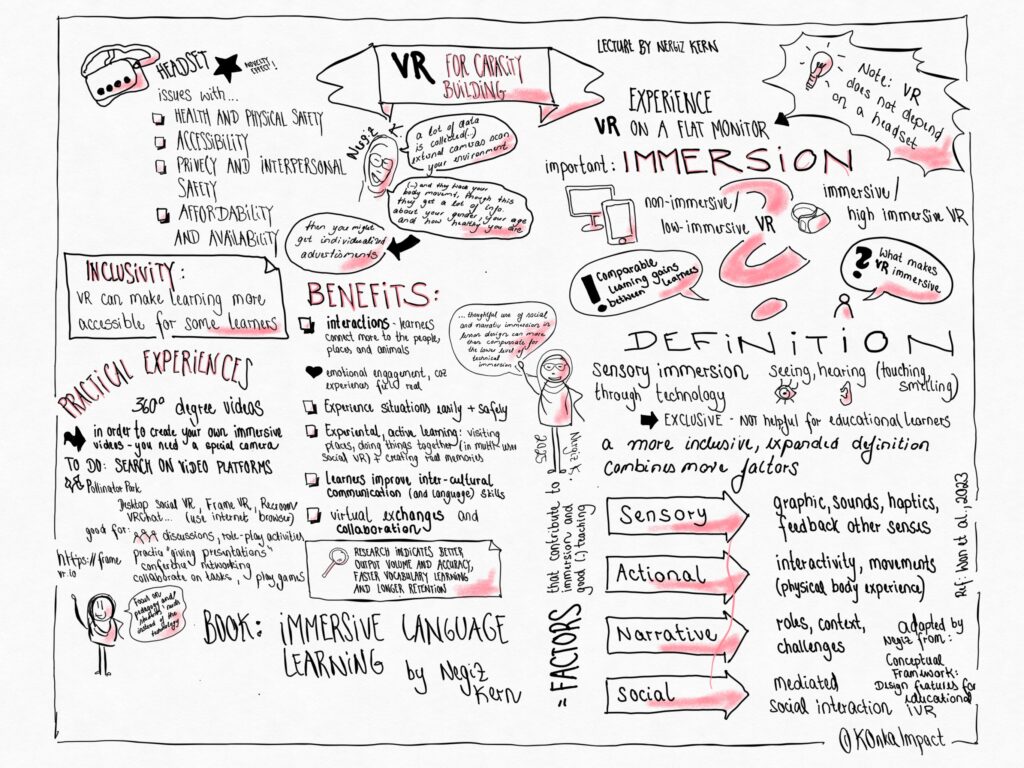 VR FOR CAPACITY
BUILDING
LECTURE BY NERGIZ KERN
HEADSET
NOVELTY
EFFECT!
issues with...
HEALTH AND PHYSICAL SAFETY
ACCESSIBILITY
PRIVECY AND INTERPERSONAL
SAFETY
AFFORDABILITY
AND AVAILABILITY
INCLUSIVITY:
VR can make learning more
accessible for some learners
PRACTICAL EXPERIENCES
360° degree videos
in order to create your own immersive
videos - you need a special camera
TO DO: SEARCH ON VIDEO PLATFORMS
Pollinator Park
Desktop social VR, Frame VR, Recroom
VRChat... (use internet browser)
good for: discussions, role-play activities
practice "giving presentations"
conferences networking
collaborate on tasks, play games
https://frame
vr.io
Focus on
pedagogy and
students' needs
instead of the
technology
Nergiz K
a lot of data
is collected(..)
external cameras scan
your environment
(...) and they track your
body movemt, through this
they get a lot of info
about your gender, your age
and how healthy you are
then you might
get individualized
advertisments
BENEFITS:
interactions - learners
connect more to the people,
places, and animals
emotional engagement, coz
experience feels real
Experience situations easily + safely
Experiental, active learning: visiting
places, doing things together (in multi-user
social VR) & creating real memories
Learners improve inter-cultural
communication (and language) skills
virtual exchanges and
collaboration
RESEARCH INDICATES BETTER
OUTPUT VOLUME AND ACCURACY,
FASTER VOCABULARY LEARNING
AND LONGER RETENTION
BOOK: IMMERSIVE LANGUAGE
LEARNING
by Negiz
Kern
... thoughtful use of social
and narrativ immersion in
lesson design can more
than compensate for
the lower level of
technical
immersion
Nergiz K.
2025
Note: VR
does not depend
on a headset
EXPERIENCE
VR ON A FLAT MONITOR
important: IMMERSION
non-immersive/
low-immersive VR
immersive/
high immersive VR
! Comparable
learning gains
between learners
? What makes
VR immersive
DEFINITION
sensory immersion
through technology
seeing, hearing (touching
smelling)
EXCLUSIVE - NOT helpful for educational learners
a more inclusive, expanded definition
combines more factors
"FACTORS
that contribute to
immersion and
good (.) teaching
Sensory
graphic, sounds, haptics,
feedback other senses
Actional
interactivity, movements
(physical body experience)
Narrative
roles, context,
challenges
Social
mediated
social interaction
Ref: Won et al., 2023
adapted by
Negiz from:
Conceptual
Framework:
Design features for
educational
IVR
@KOnkaImpact